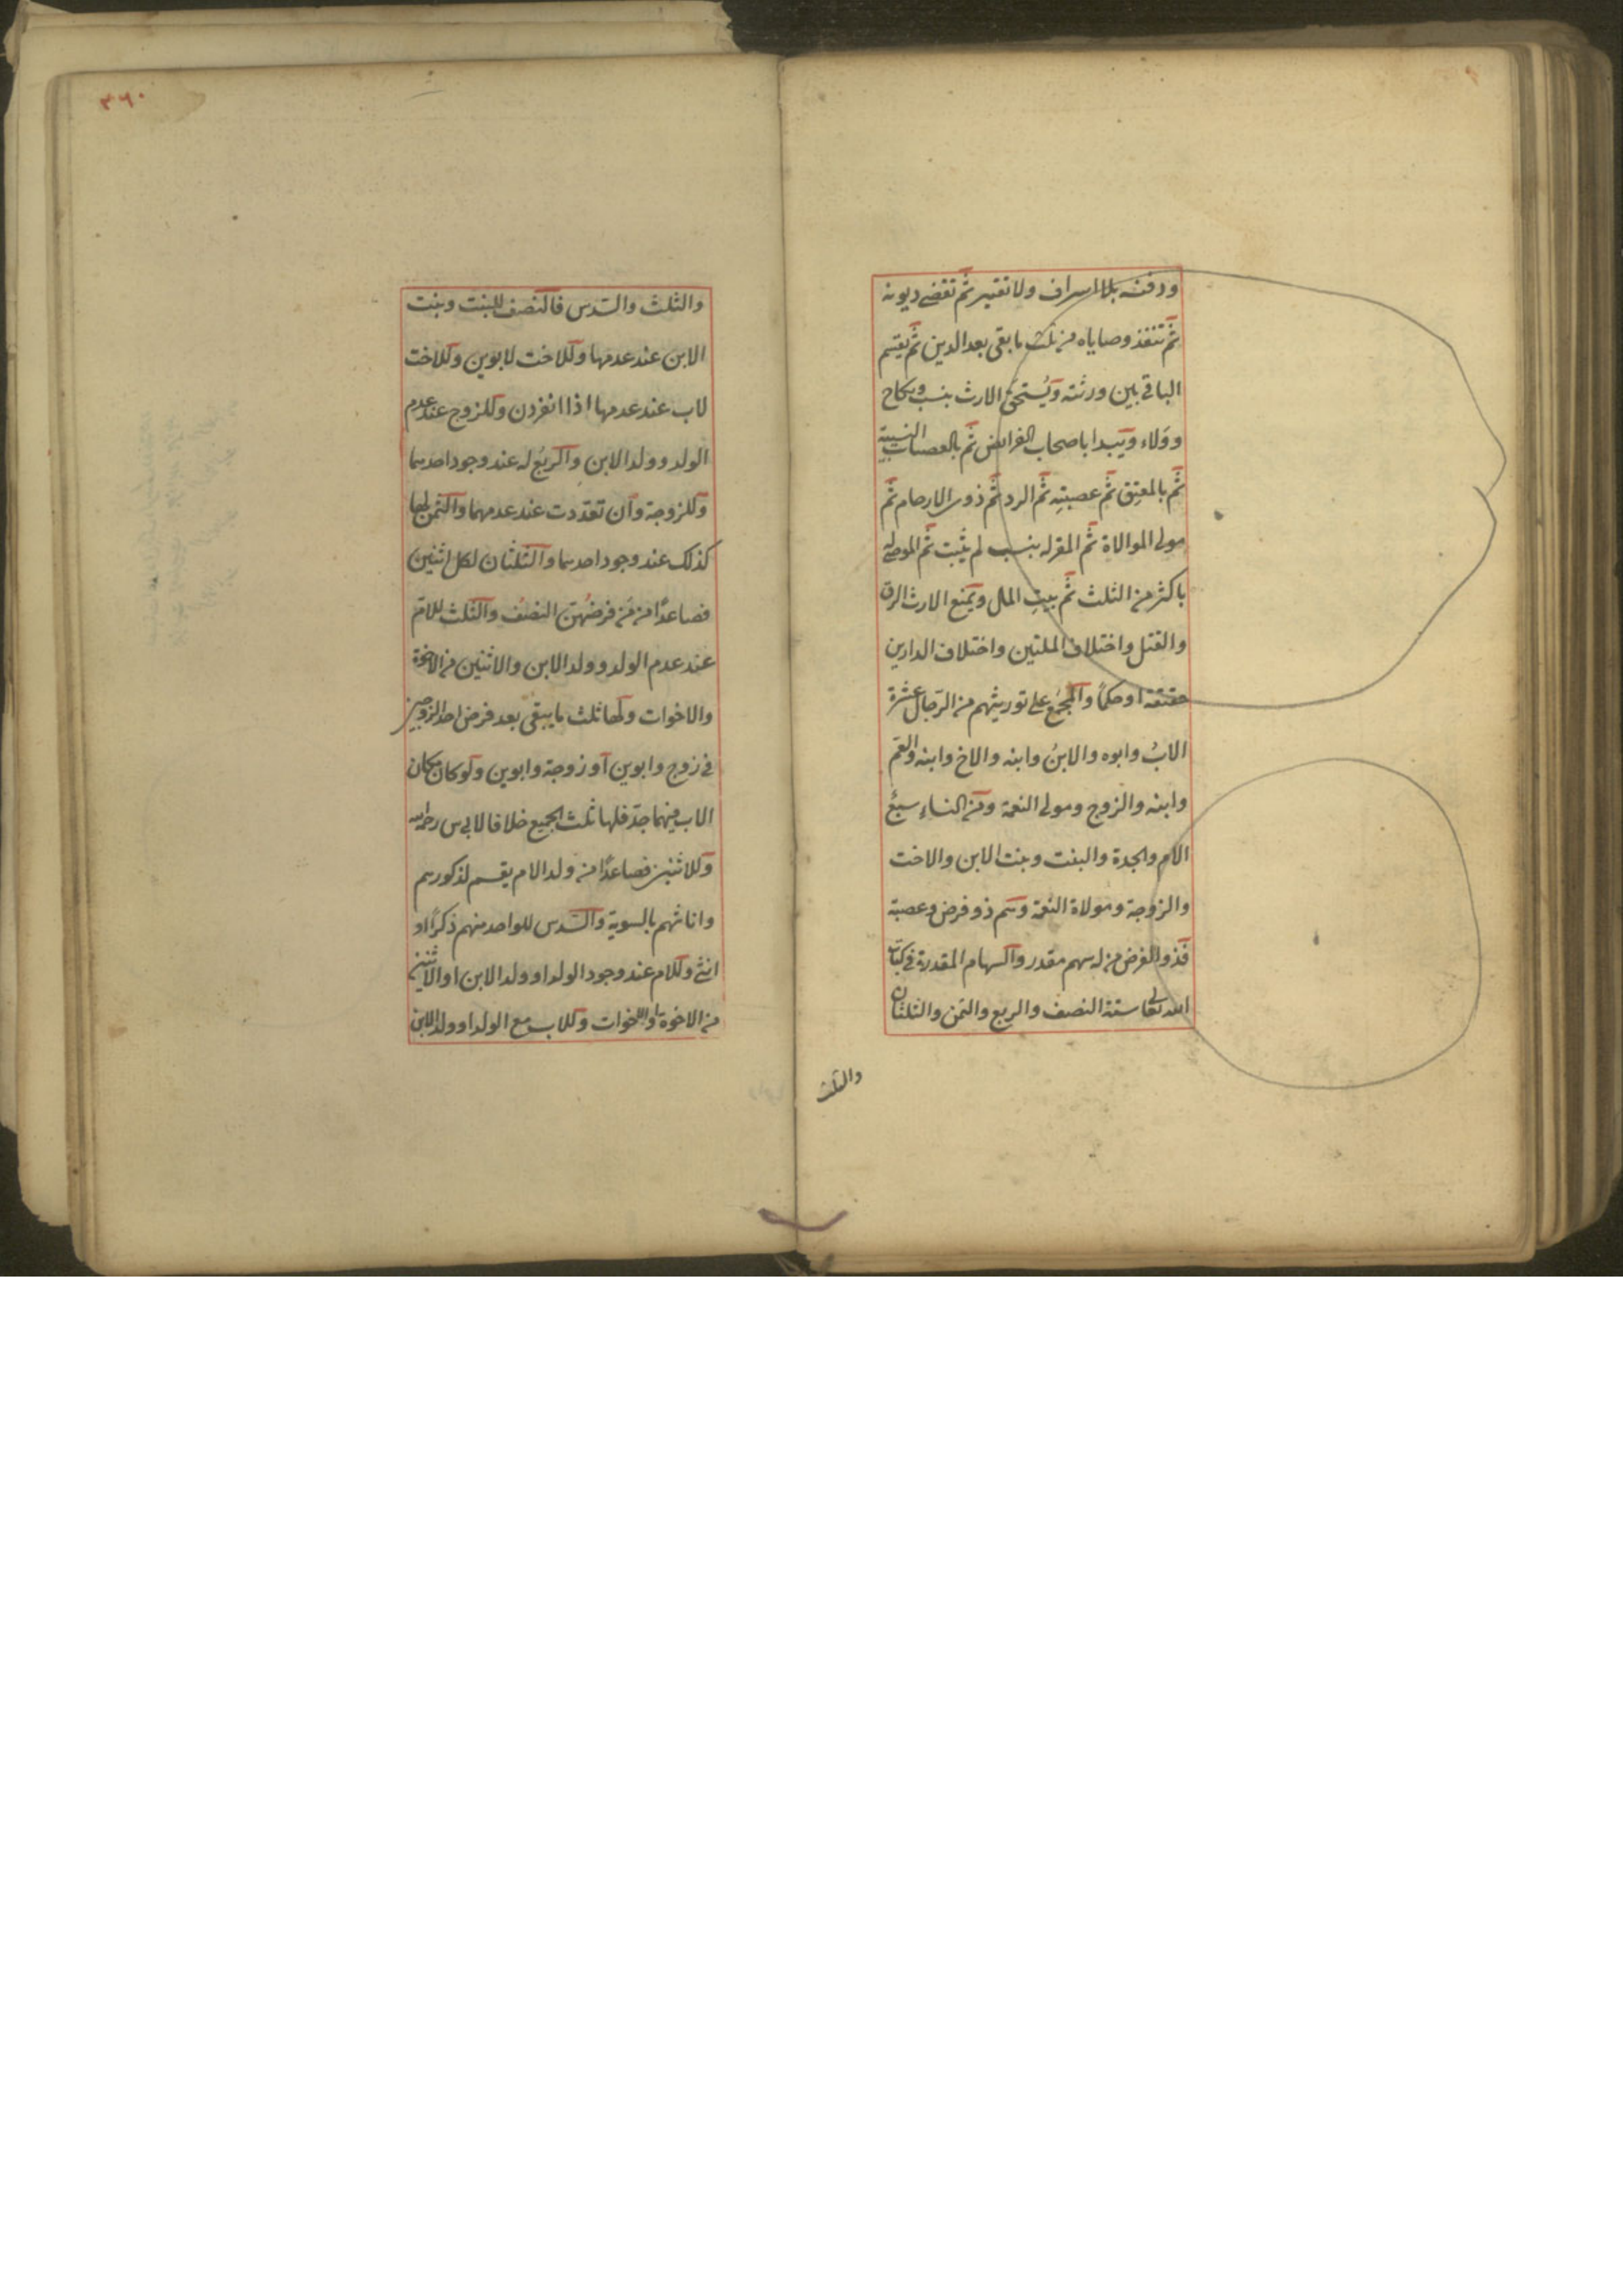 ودفنه بلا اسراف ولا تقتير ثم تقضى ديونه
ثم تنفذ وصاياه من ثلث ما بقى بعد الدين ثم يقسم
الباقي بين ورثته ويُستحق الارث بنسب ونكاح
وولاء ويبدا باصحاب الفرائض ثم بالعصبات النسبية
ثم بالمعتِق ثم عصبتِه ثم الرد ثم ذوى الارحام ثم
مولى الموالاة ثم المقر له بنسب لم يثبت ثم الموصى له
باكثر من الثلث ثم بيت المال ويمنع الارث الرق
والقتل واختلاف الملتين واختلاف الدارين
حقيقة او حكمًا والمجمَع على توريثهم من الرجال عشرة
الابُ وابوه والابنُ وابنه والاخ وابنه والعم
وابنه والزوج ومولى النعمة ومن النساء سبعٌ
الام والجدة والبنت وبنت الابن والاخت
والزوجة ومولاة النعمة وهم ذو فرض وعصبة
فذو الفرض من له سهم مقدر والسهام المقدرة في كتاب
الله تعالى ستة النصف والربع والثمن والثلثان
والثلث
٣٦٠
والثلث والسدس فالنصف للبنت وبنت
الابن عند عدمها وللاخت لابوين وللاخت
لاب عند عدمها اذا انفردن وللزوج عند عدم
الولد وولد الابن والربعُ له عند وجود احدهما
وللزوجة وان تعددت عند عدمهما والثمن لها
كذلك عند وجود احدهما والثلثان لكل اثنين
فصاعدًا من مَن فرضهن النصف والثلث للام
عند عدم الولد وولد الابن والاثنين من الاخوة
والاخوات ولها ثلث ما يبقى بعد فرض احد الزوجين
في زوج وابوين او زوجة وابوين ولو كان مكان
الاب فيهما جد فلها ثلث الجميع خلافا لابي س رحمه الله
وللاثنين فصاعدًا من ولد الام يقسم لذكورهم
واناثهم بالسوية والسدس للواحد منهم ذكرًا او
انثى وللام عند وجود الولد او ولد الابن او الاثنين
من الاخوة او الاخوات وللاب مع الولد او ولد الابن